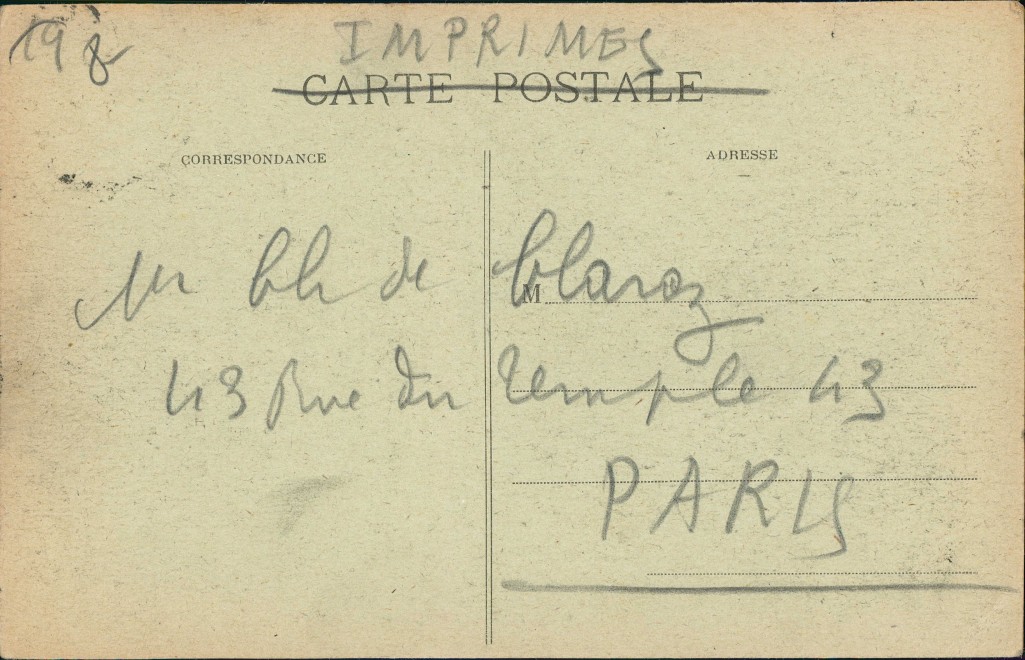 IMPRIMES
CARTE POSTALE
CORRESPONDANCE
ADRESSE
Mr Ch de Claroz
M
43 Rue du Temple 43
PARIS